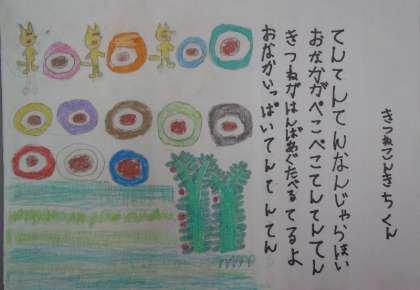 きつねこんきちくん
てんてんてんなんじゃらほい
おなかがぺこぺこてんてんてん
きつねがはんばあぐたべてるよ
おなかいっぱいてんてんてん